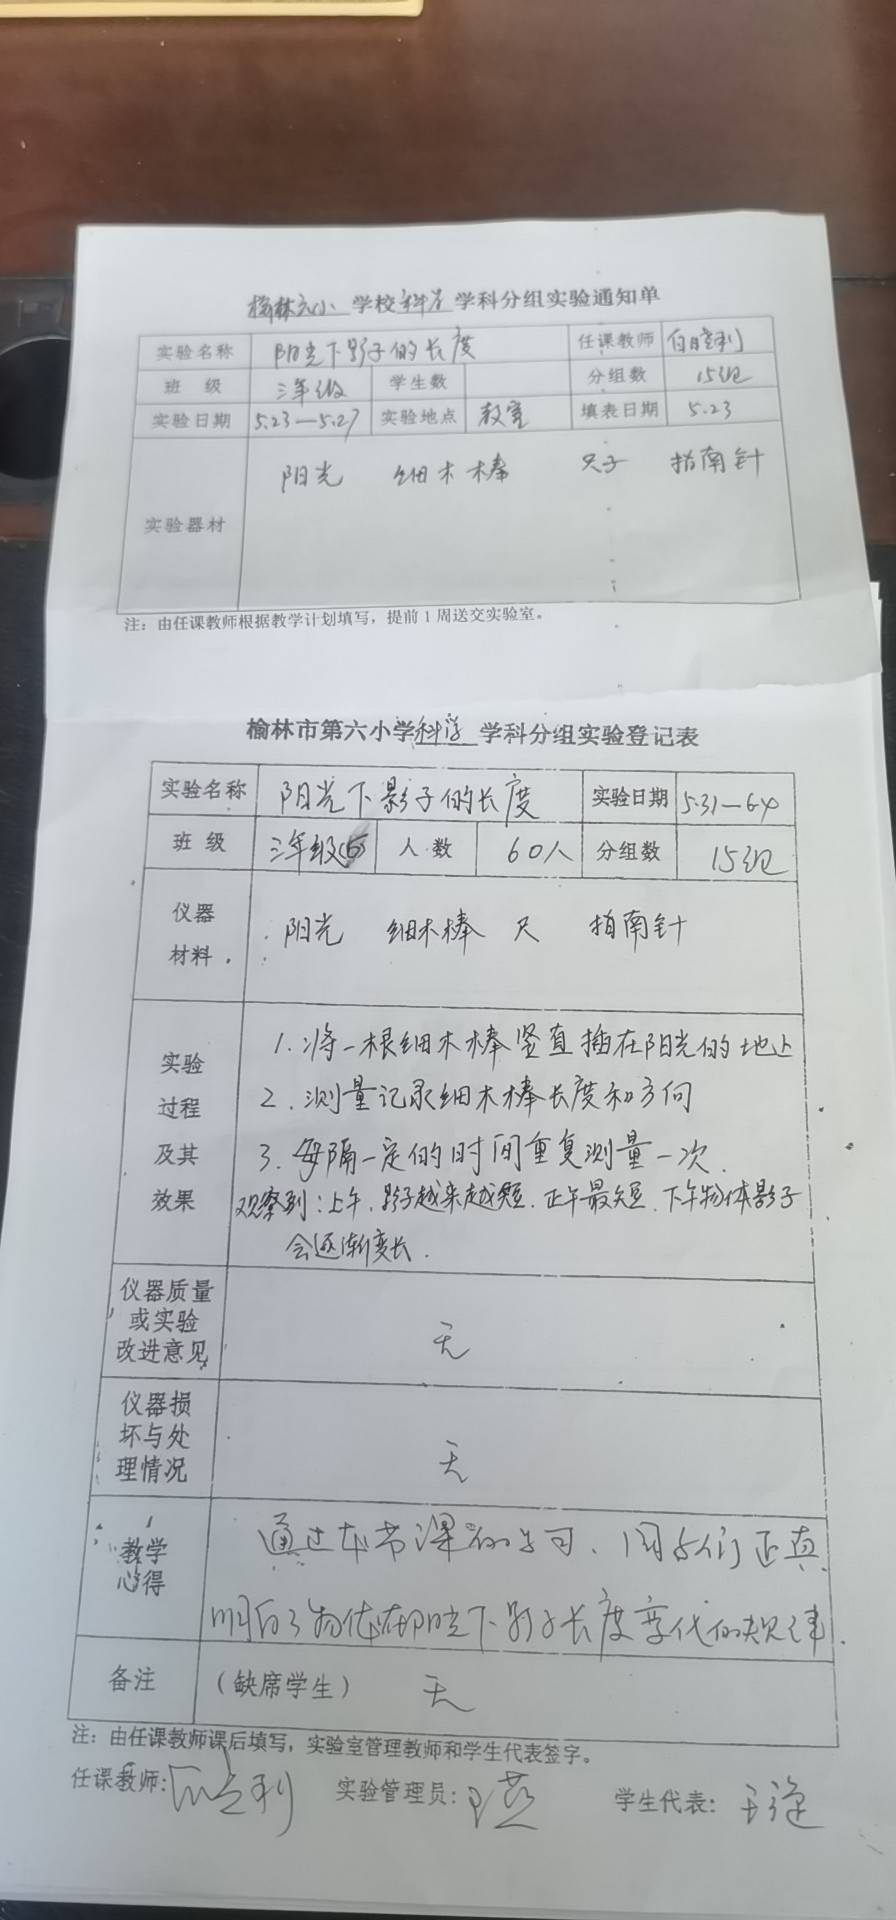 榆林六小 学校科学 学科分组实验通知单
实验名称 阳光下影子的长度 任课教师 白胜利
班 级 三年级 学生数 分组数 15组
实验日期 5.23—5.27 实验地点 教室 填表日期 5.23
实验器材 阳光 细木棒 尺子 指南针
注：由任课教师根据教学计划填写，提前1周送交实验室。
榆林市第六小学科学 学科分组实验登记表
实验名称 阳光下影子的长度 实验日期 5.31—6.4
班 级 三年级(5) 人 数 60人 分组数 15组
仪器材料 阳光 细木棒 尺 指南针
实验过程及其效果
1.将一根细木棒竖直插在阳光的地上
2.测量记录细木棒长度和方向
3.每隔一定的时间重复测量一次.
观察到:上午,影子越来越短.正午最短.下午物体影子
会逐渐变长.
仪器质量或实验改进意见 无
仪器损坏与处理情况 无
教学心得
通过本节课的学习、同学们正真
明白了物体在阳光下影子长度变化的规律.
备注 （缺席学生） 无
注：由任课教师课后填写，实验室管理教师和学生代表签字。
任课教师: 实验管理员: 学生代表: